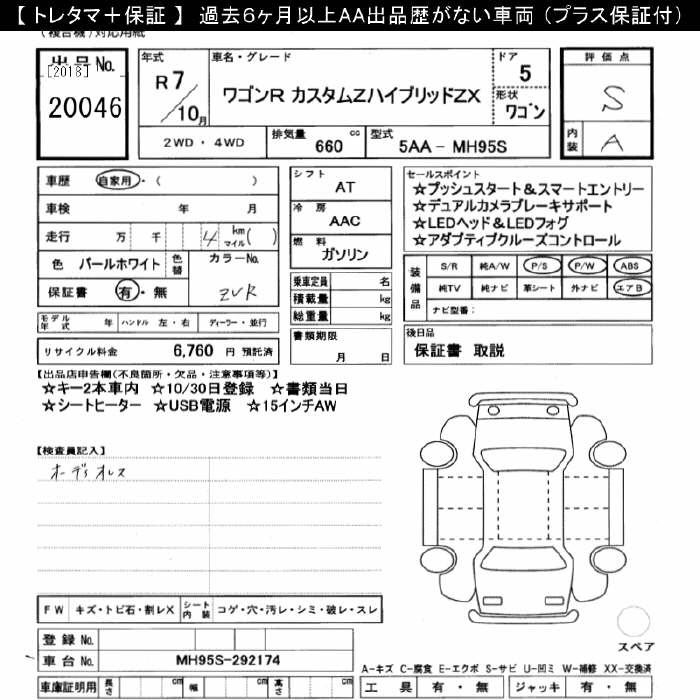 【 トレタマ＋保証 】 過去6ヶ月以上AA出品歴がない車両（プラス保証付）
(複合機)対応用紙
出品 No.
[2018]
20046
年式
R 7 / 10 月
車名・グレード
ワゴンR カスタムZハイブリッドZX
ドア
5
形状
ワゴン
評価点
S
内装
A
2WD・4WD
排気量 660 cc
型式 5AA－MH95S
車歴 自家用・( )
車検 年 月
走行 万 千 4 km マイル ( )
色 パールホワイト 色替 カラーNo.
保証書 有・無 ZVR
モデル年式 年 ハンドル 左・右 ディーラー・並行
リサイクル料金 6,760 円 預託済
シフト AT
冷房 AAC
燃料 ガソリン
乗車定員 名
積載量 kg
総重量 kg
書類期限
月 日
セールスポイント
☆プッシュスタート＆スマートエントリー
☆デュアルカメラブレーキサポート
☆LEDヘッド＆LEDフォグ
☆アダプティブクルーズコントロール
装備品
S/R 純A/W P/S P/W ABS
純TV 純ナビ 革シート 外ナビ エアB
ナビ型番：
後日品
保証書 取説
【出品店申告欄(不良箇所・欠品・注意事項等)】
☆キー2本車内 ☆10/30日登録 ☆書類当日
☆シートヒーター ☆USB電源 ☆15インチAW
【検査員記入】
オーディオレス
FW キズ・トビ石・割レX シート内装 コゲ・穴・汚レ・シミ・破レ・スレ
登録 No.
車台 No. MH95S-292174
車庫証明用 長さ cm 幅 cm 高さ cm
スペア
A-キズ C-腐食 E-エクボ S-サビ U-凹ミ W-補修 XX-交換済
工具 有・無 ジャッキ 有・無